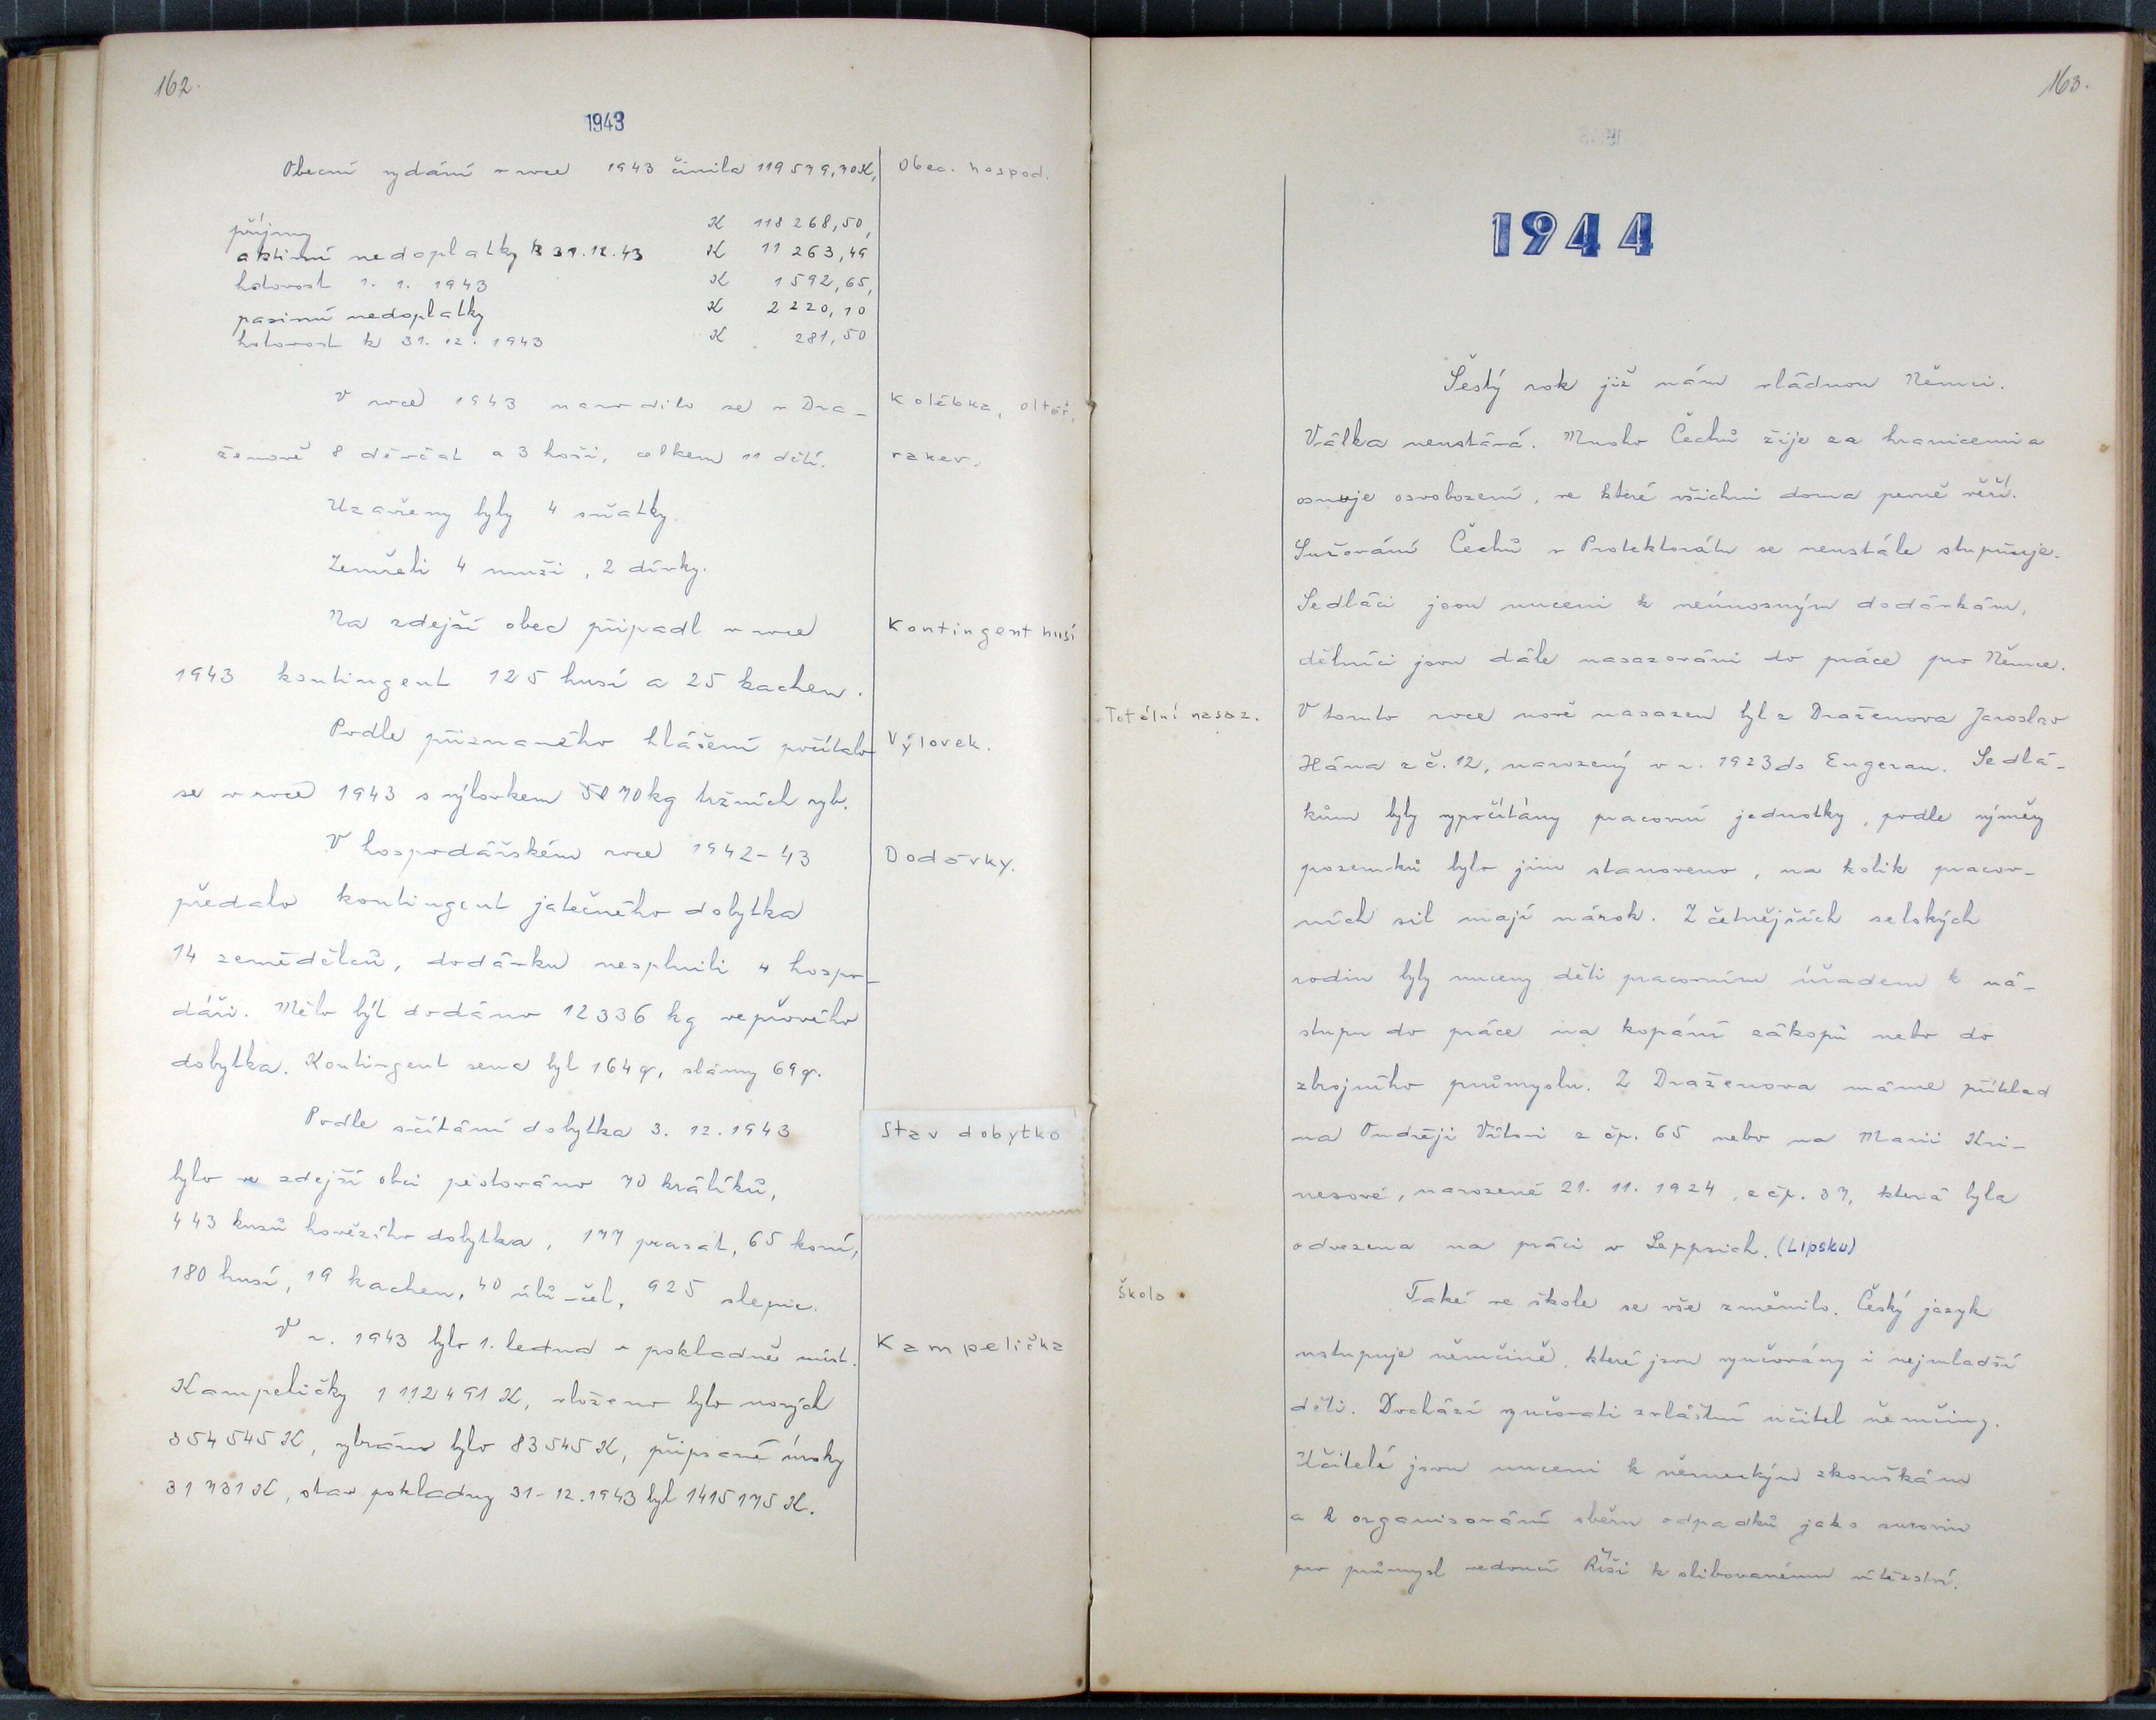 162.
1943
Obecní vydání v roce 1943 činila 119 579,70 K,
Obec. hospod.
příjmy K 118 268,50,
aktivní nedoplatky k 31.12.43 K 11 263,49
hotovost 1. 1. 1943 K 1 592,65,
pasivní nedoplatky K 2 220,10
hotovost k 31. 12. 1943 K 281,50
V roce 1943 narodilo se v Dra-
Kolébka, oltář,
ženově 8 děvčat a 3 hoši, celkem 11 dětí.
rakev.
Uzavřeny byly 4 sňatky.
Zemřeli 4 muži, 2 dívky.
Na zdejší obec připadl v roce
Kontingent husí
1943 kontingent 125 husí a 25 kachen.
Podle přiznaného hlášení počítalo
Výlovek.
se v roce 1943 s výlovkem 70 kg tržních ryb.
V hospodářském roce 1942-43
Dodávky.
předalo kontingent jatečného dobytka
14 zemědělců, dodávku nesplnili 4 hospo-
dáři. Mělo být dodáno 12 336 kg vepřového
dobytka. Kontingent sena byl 164 q, slámy 69 q.
Podle sčítání dobytka 3. 12. 1943
Stav dobytka
bylo ve zdejší obci pěstováno 70 králíků,
443 kusů hovězího dobytka, 177 prasat, 65 koní,
180 husí, 19 kachen, 40 úlů-čel, 925 slepic.
V r. 1943 bylo 1. ledna v pokladně míst.
Kampelička
Kampeličky 1 112 491 K, vloženo bylo nových
354 545 K, vybráno bylo 83 545 K, připsané úroky
31 731 K, stav pokladny 31-12.1943 byl 1415 175 K.
163.
1944
Šestý rok již nám vládnou Němci.
Válka neustává. Mnoho Čechů žije za hranicemi a
osnuje osvobození, ve které všichni doma pevně věří.
Sužování Čechů v Protektorátu se neustále stupňuje.
Sedláci jsou nuceni k neúnosným dodávkám,
dělníci jsou dále nasazováni do práce pro Němce.
Totální nasaz.
V tomto roce nově nasazen byl z Draženova Jaroslav
Hána z č. 12, narozený v r. 1923 do Engerau. Sedlá-
kům byly vypočítány pracovní jednotky, podle výměry
pozemků bylo jim stanoveno, na kolik pracov-
ních sil mají nárok. Z četnějších selských
rodin byly nuceny děti pracovním úřadem k ná-
stupu do práce na kopání zákopů nebo do
zbrojního průmyslu. Z Draženova máme příklad
na Ondřeji Vítovi z čp. 65 nebo na Marii Kri-
nesové, narozené 21. 11. 1924, z čp. 37, která byla
odvezena na práci v Leppsich. (Lipsku)
Škola
Také ve škole se vše změnilo. Český jazyk
ustupuje němčině, které jsou vyučovány i nejmladší
děti. Dochází vyučovati zvláštní učitel němčiny.
Učitelé jsou nuceni k německým zkouškám
a k organisování sběru odpadků jako surovin
pro průmysl vedoucí Říši k slibovanému vítězství.